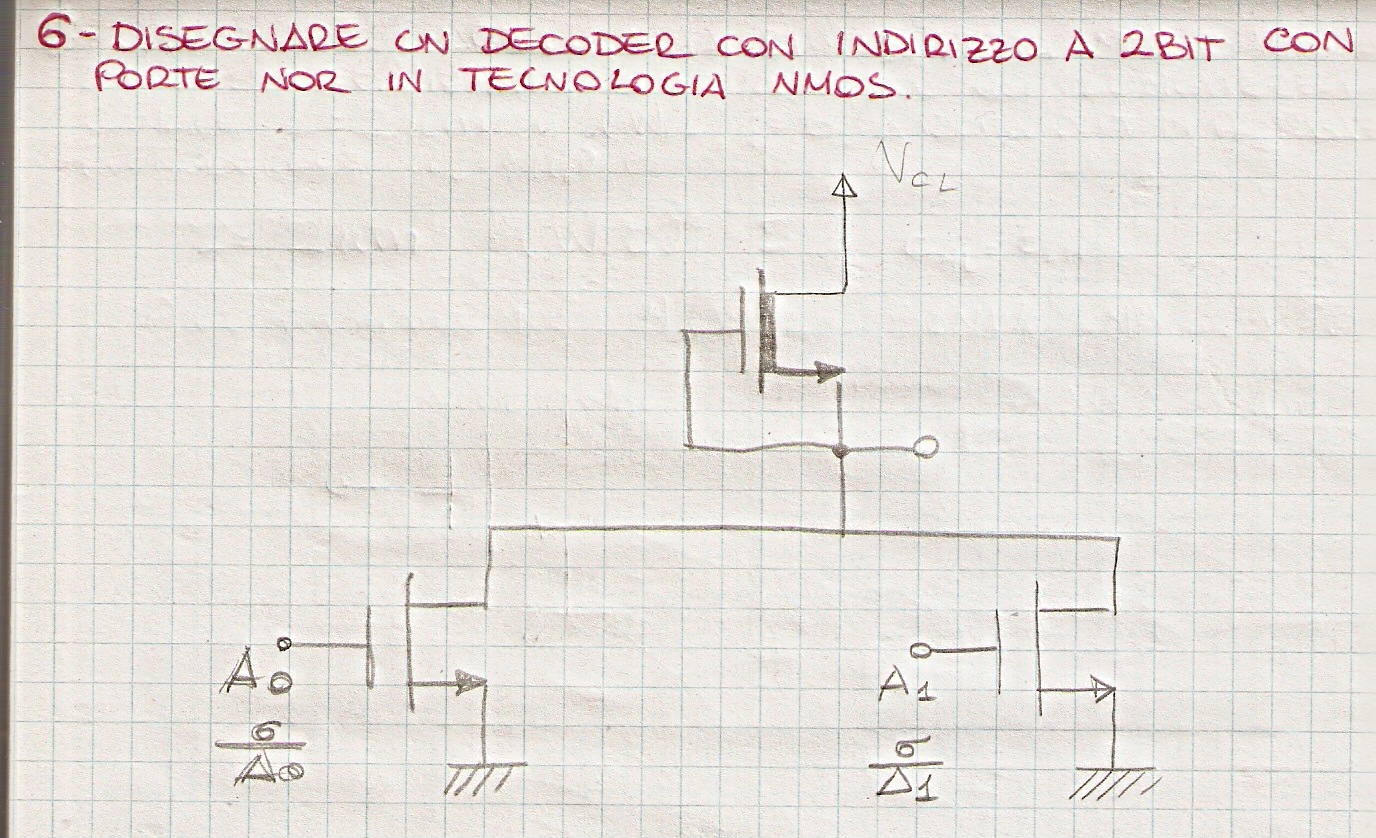 6- DISEGNARE UN DECODER CON INDIRIZZO A 2BIT CON
PORTE NOR IN TECNOLOGIA NMOS.
VCL
A0
A1
σ
A0
σ
A1